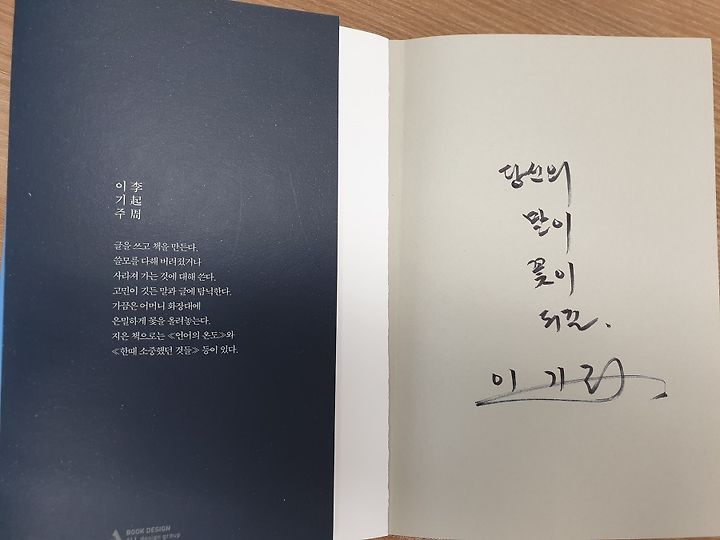 이기주
李起周
글을 쓰고 책을 만든다.
쓸모를 다해 버려졌거나
사라져 가는 것에 대해 쓴다.
고민이 깃든 말과 글에 탐닉한다.
가끔은 어머니 화장대에
은밀하게 꽃을 올려놓는다.
지은 책으로는 ≪언어의 온도≫와
≪한때 소중했던 것들≫ 등이 있다.
BOOK DESIGN
design group
당신의
말이
꽃이
되길.
이기주